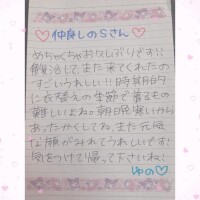 ♡仲良しのSさん♡
めちゃくちゃお久しぶりです!!
また来てくれたの
すごいうれしい!!時期的
に衣替えの季節で着るもの
難しいよね。朝日晩寒いから
あったかくしてね。また元気
な顔がみれてうれしいです!
気をつけて帰って下さいね♪
ゆの♡